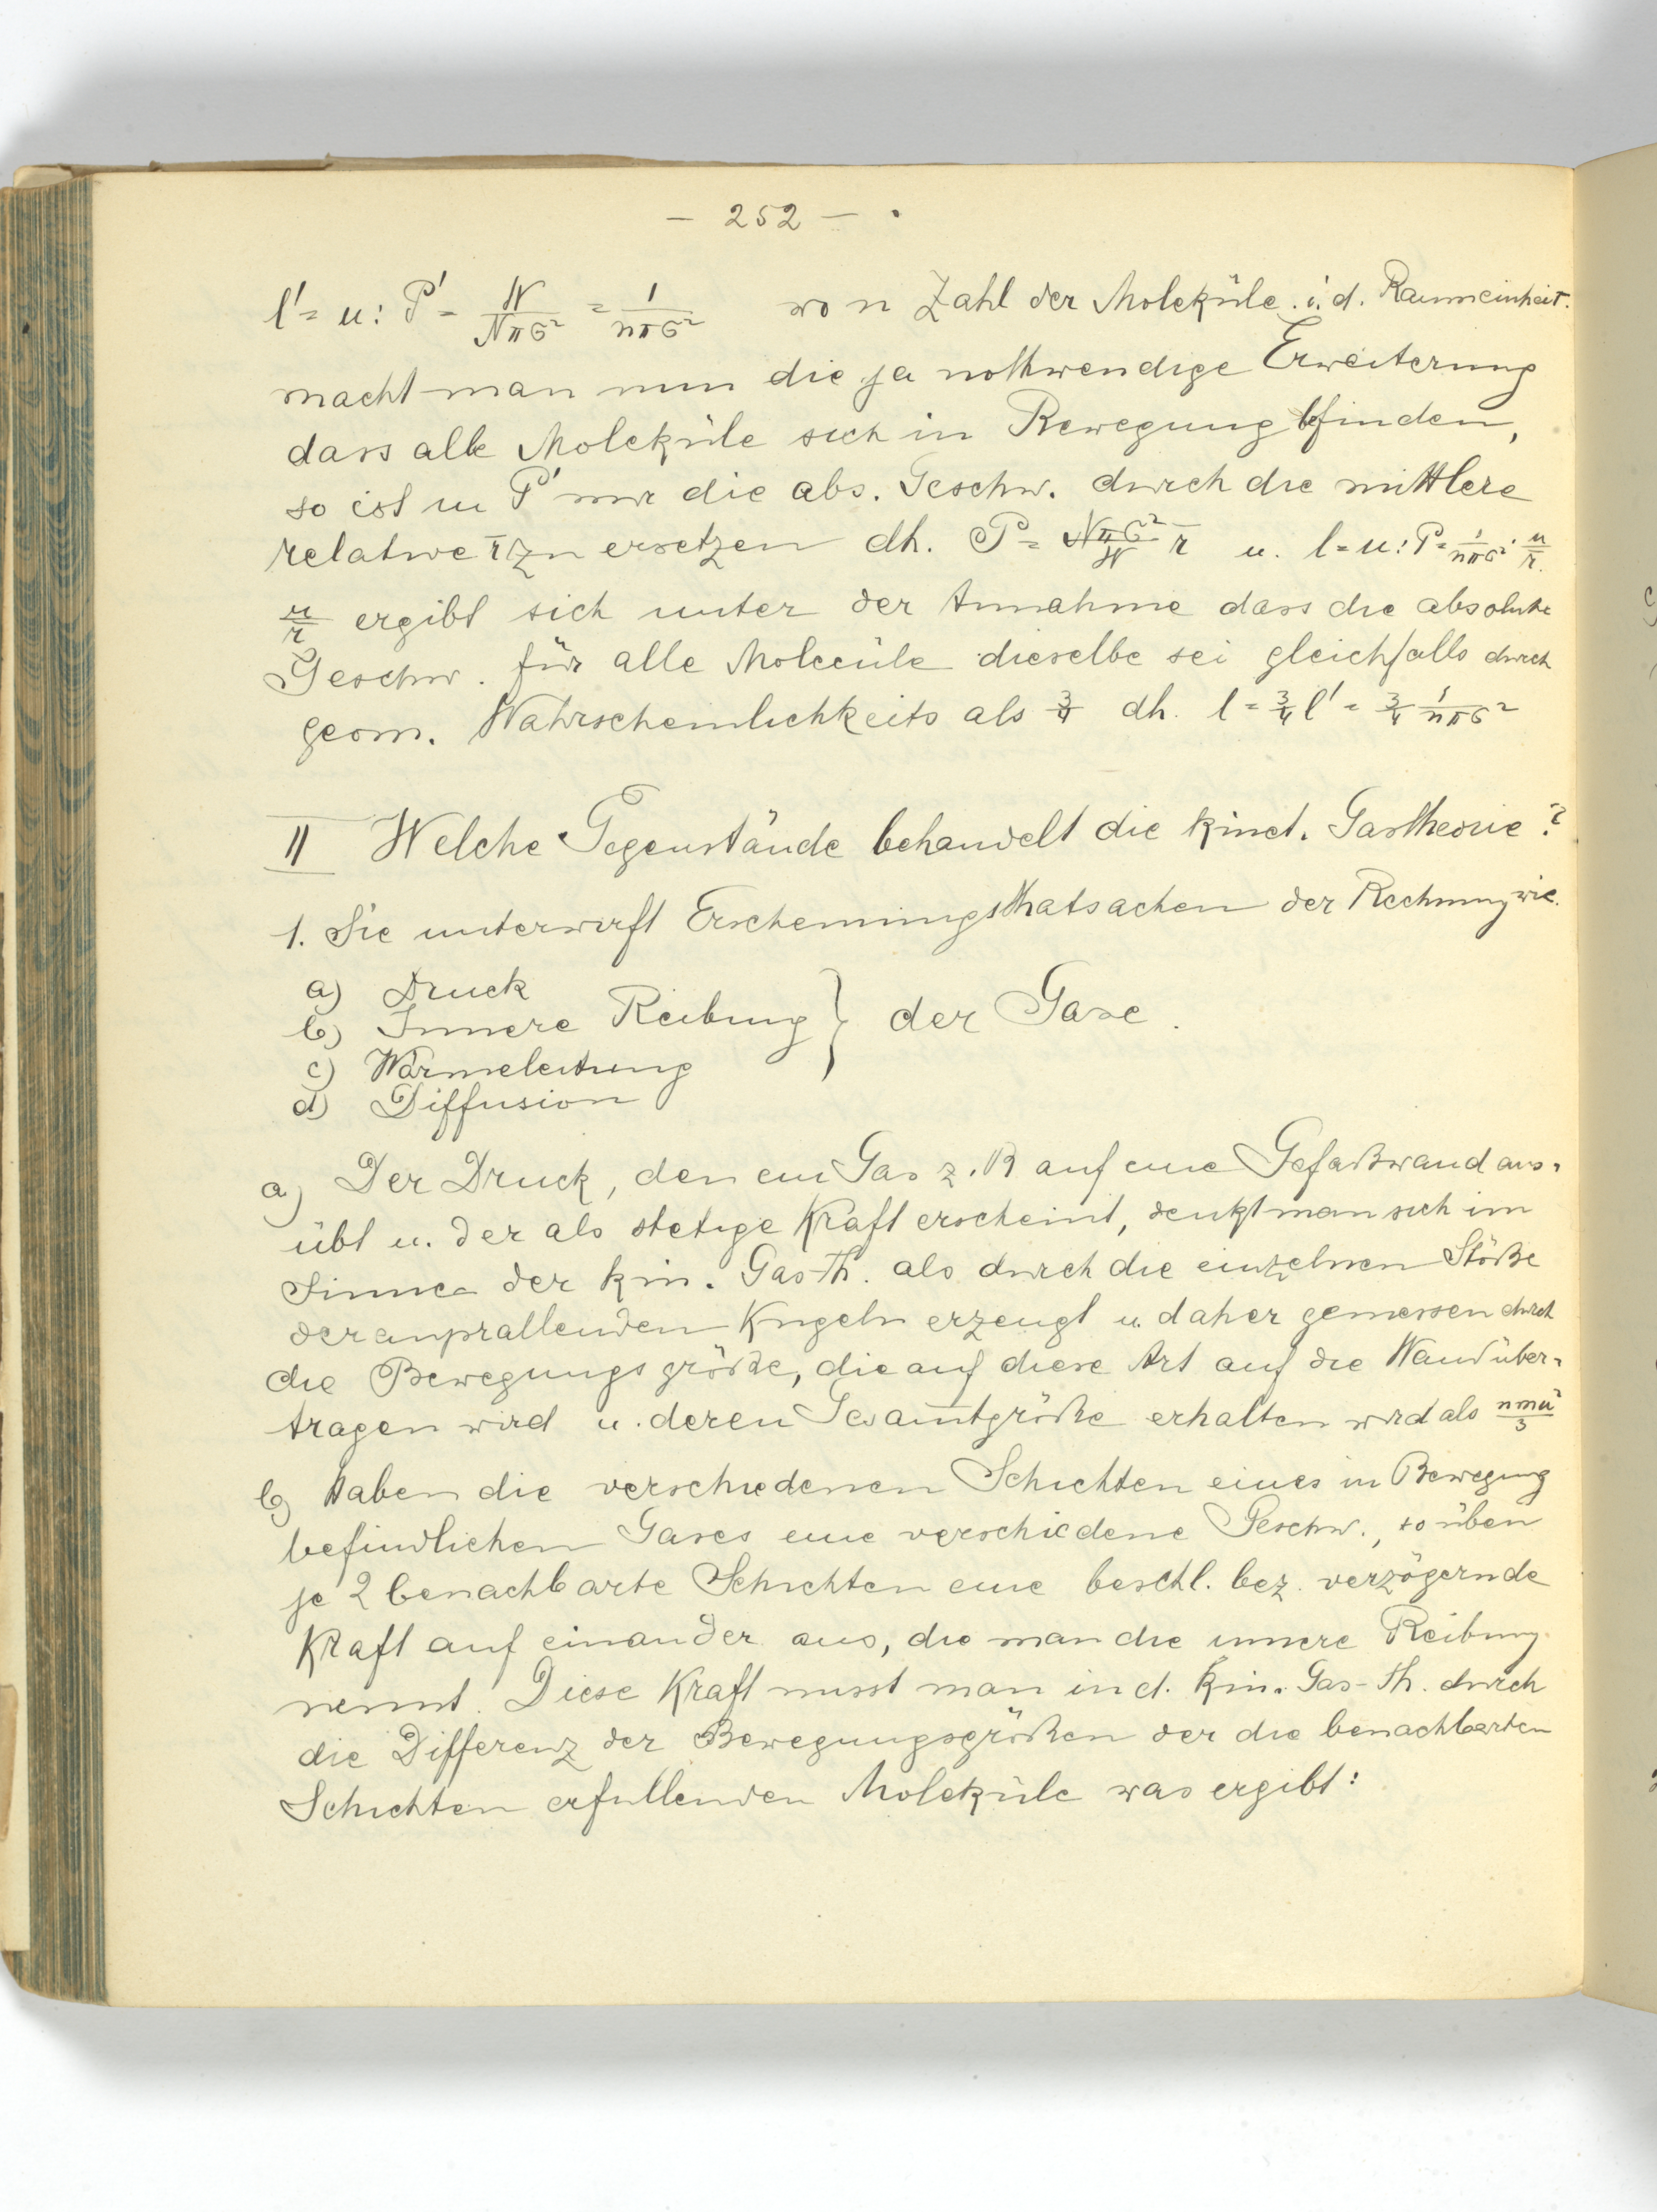 – 252 – .
l' = u : P' = W/Nπσ² = 1/nπσ² wo n Zahl der Moleküle i. d. Raumeinheit.
macht man nun die ja nothwendige Erweiterung
dass alle Moleküle sich in Bewegung befinden,
so ist in P' nur die abs. Geschw. durch die mittlere
relative r̄ zu ersetzen dh. P = Nπσ²/W r̄ u. l = u : P = 1/nπσ² · u/r̄.
u/r̄ ergibt sich unter der Annahme dass die absolute
Geschw. für alle Molecüle dieselbe sei gleichfalls durch
geom. Wahrscheinlichkeits als 3/4 dh. l = 3/4 l' = 3/4 1/nπσ²
II Welche Gegenstände behandelt die kinet. Gastheorie?
1. Sie unterwirft Erscheinungsthatsachen der Rechnung wie.
a) Druck
b) Innere Reibung } der Gase.
c) Wärmeleitung
d) Diffusion
a) Der Druck, den ein Gas z. B auf eine Gefaßwand aus-
übt u. der als stetige Kraft erscheint, denkt man sich im
Sinne der kin. Gas-Th. als durch die einzelnen Stöße
der anprallenden Kugeln erzeugt u. daher gemessen durch
die Bewegungsgröße, die auf diese Art auf die Wand über-
tragen wird u. deren Gesam̅tgröße erhalten wird als nmu²/3
b) Haben die verschiedenen Schichten eines in Bewegung
befindlichen Gases eine verschiedene Geschw., so üben
je 2 benachbarte Schichten eine beschl. bez. verzögernde
Kraft auf einander aus, die man die innere Reibung
nennt. Diese Kraft misst man in d. kin. Gas-Th. durch
die Differenz der Bewegungsgrößen der die benachbarten
Schichten erfullenden Moleküle was ergibt: